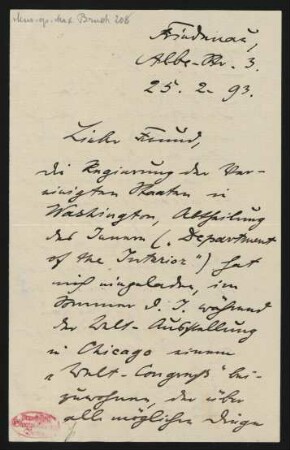 Mus. ep. Max Bruch 208
Friedenau,
Albe-Str. 3.
25. 2. 93.
Lieber Freund,
die Regierung der Ver-
einigten Staaten in
Washington, Abtheilung
des Innern („Department
of the Interior“) hat
mich eingeladen, im
Sommer d. J. während
der Welt-Ausstellung
in Chicago einem
„Welt-Congreß“ bei-
zuwohnen, der über
alle möglichen Dinge